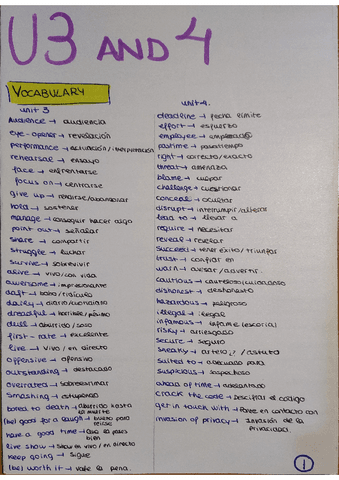 U3 AND 4
VOCABULARY
unit 3
Audience → audiencia
eye-opener → revelación
performance → actuación/interpretación
rehearsal → ensayo
face → enfrentarse
focus on → centrarse
give up → rendirse/abandonar
hold → sostener
manage → conseguir hacer algo
point out → señalar
share → compartir
struggle → luchar
survive → sobrevivir
alive → vivo/con vida
awesome → impresionante
daft → bobo/ridículo
daily → diario/cotidiano
dreadful → horrible/pésimo
dull → aburrido/soso
first-rate → excelente
live → vivo/en directo
offensive → ofensivo
outstanding → destacado
overrated → sobreestimar
smashing → estupendo
bored to death → aburrido hasta la muerte
(be) good for a laugh → bueno para reirse
have a good time → pasarlo bien
live show → show en vivo/en directo
keep going → sigue
(be) worth it → vale la pena.
unit 4.
deadline → fecha límite
effort → esfuerzo
employee → empleado
pastime → pasatiempo
right → correcto/exacto
threat → amenaza
blame → culpar
challenge → cuestionar
conceal → ocultar
disrupt → interrumpir/alterar
lead to → llevar a
require → necesitar
reveal → revelar
succeed → tener éxito/triunfar
trust → confiar en
warn → avisar/advertir.
cautious → cauteloso/cuidadoso
dishonest → deshonesto
hazardous → peligroso
illegal → ilegal
infamous → infame (escoria)
risky → arriesgado
secure → seguro
sneaky → astuto
suited to → adecuado para
suspicious → sospechoso
ahead of time → adelantado
crack the code → Descifrar el código
get in touch with → Poner en contacto con
invasion of privacy → Invasión de la privacidad.
1